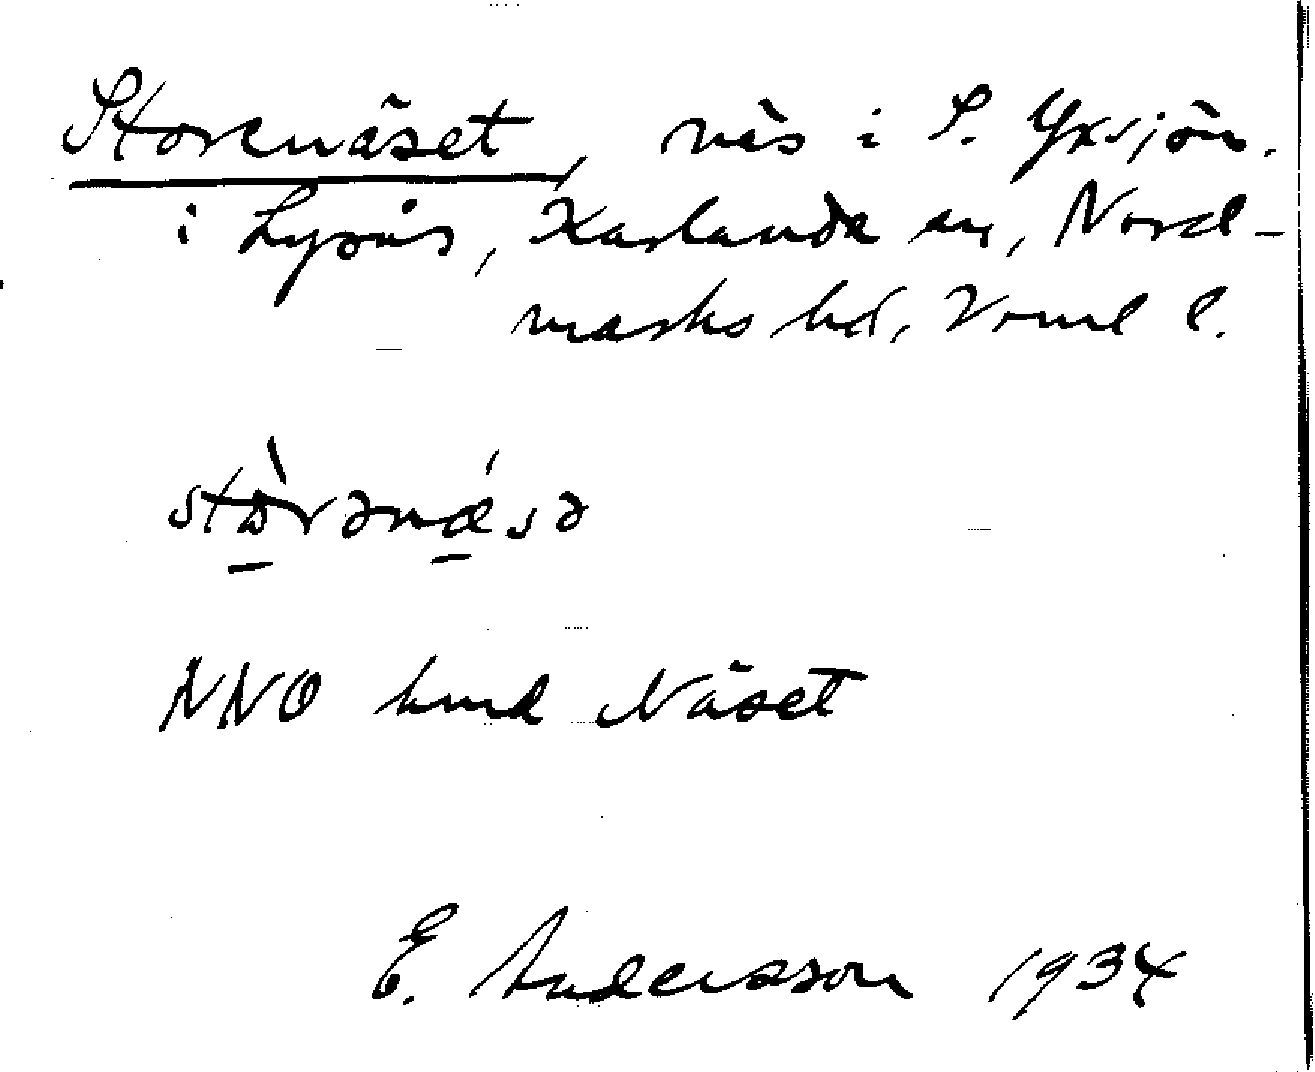 Storenäset, näs i S. Yxsjön.
i Lysås, Karlanda sn, Nord-
marks hd, Vrml l.
stòrənǽsə
NNO hmd Näset
E. Andersson 1934